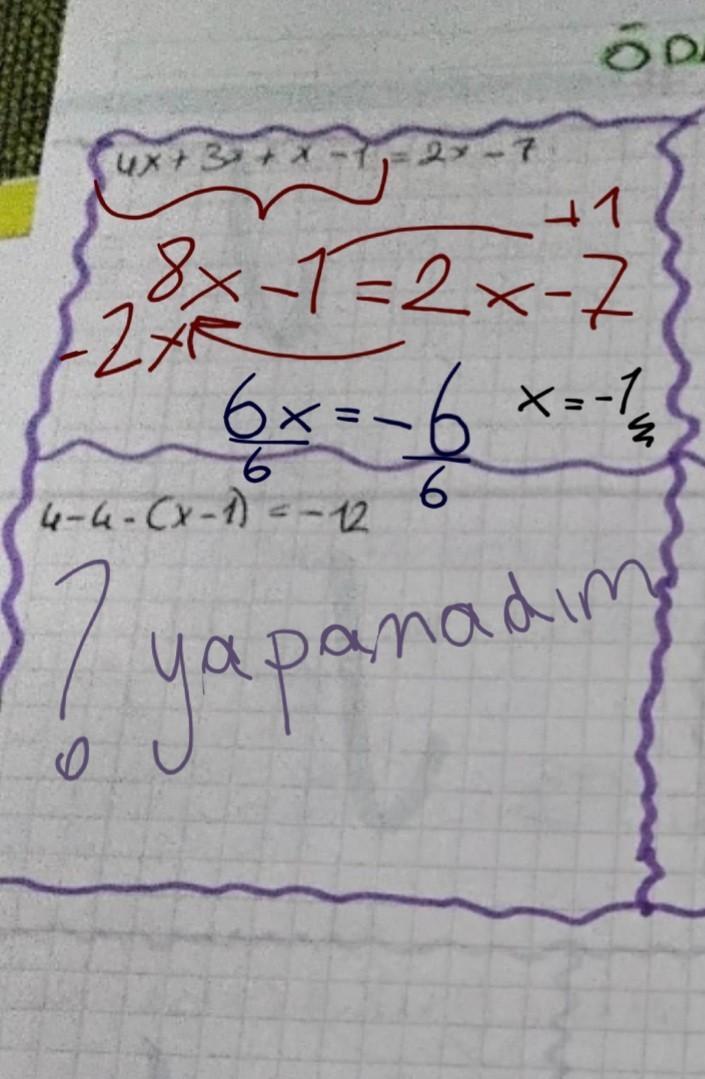 ÖD
4x + 3x + x - 1 = 2x - 7
+1
8x - 1 = 2x - 7
-2x
6x = -6 x = -1
6 6
4 - 4 - (x - 1) = -12
? yapamadım